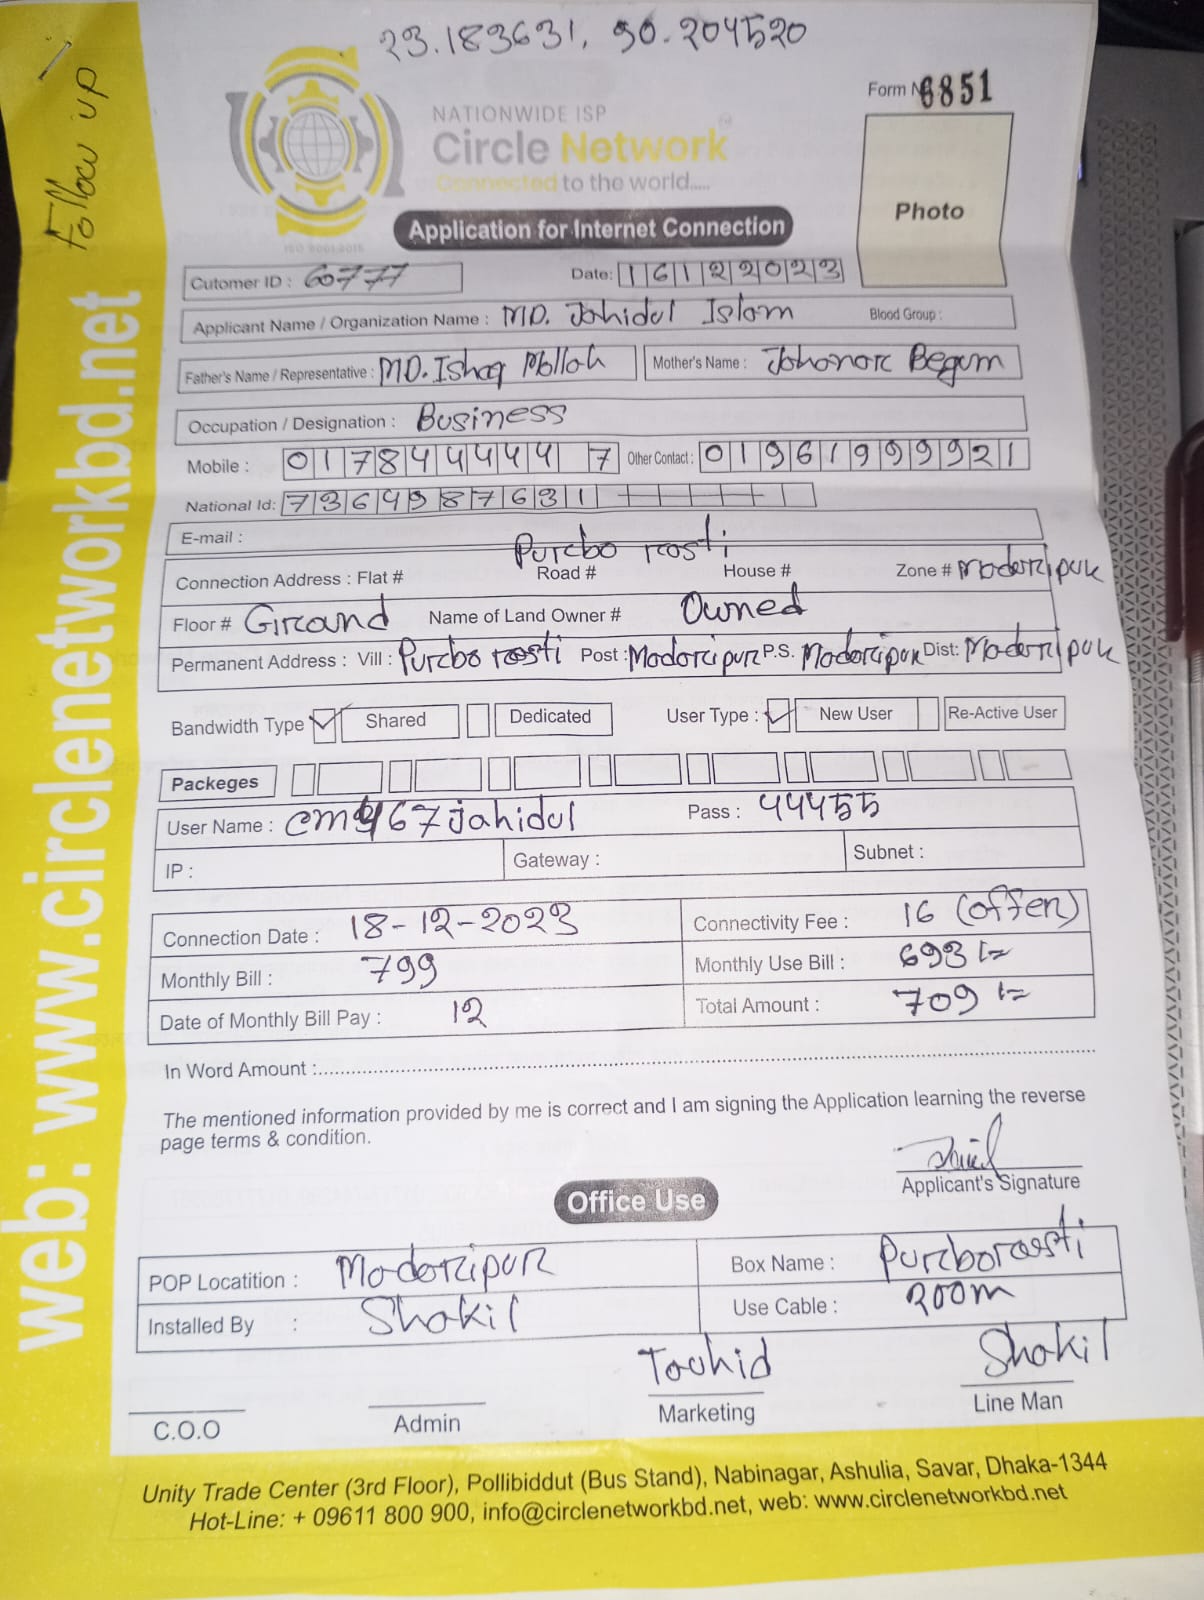 23.183631, 90.204520
Follow up
web: www.circlenetworkbd.net
NATIONWIDE ISP
Circle Network
Connected to the world.....
ISO 9001:2015
Form No 6851
Photo
Application for Internet Connection
Cutomer ID : 60777 Date: 16122023
Applicant Name / Organization Name : MD. Jahidul Islam Blood Group :
Father's Name / Representative : MD. Ishaq Mollah Mother's Name : Jahanara Begum
Occupation / Designation : Business
Mobile : 01784444447 Other Contact : 01961999921
National Id: 7364987631
E-mail :
Purbo rasti
Connection Address : Flat # Road # House # Zone # Madaripur
Floor # Ground Name of Land Owner # Owned
Permanent Address : Vill : Purbo rasti Post : Madaripur P.S. Madaripur Dist: Madaripur
Bandwidth Type Shared Dedicated User Type : New User Re-Active User
Packeges
User Name : jahidul Pass : 44455
IP : Gateway : Subnet :
Connection Date : 18-12-2023 Connectivity Fee : 16 (offer)
Monthly Bill : 799 Monthly Use Bill : 693/=
Date of Monthly Bill Pay : 12 Total Amount : 709/=
In Word Amount :
The mentioned information provided by me is correct and I am signing the Application learning the reverse
page terms & condition.
Applicant's Signature
Office Use
POP Locatition : Madaripur Box Name : Purborasti
Installed By : Shakil Use Cable : 200m
Tauhid Shakil
C.O.O Admin Marketing Line Man
Unity Trade Center (3rd Floor), Pollibiddut (Bus Stand), Nabinagar, Ashulia, Savar, Dhaka-1344
Hot-Line: + 09611 800 900, info@circlenetworkbd.net, web: www.circlenetworkbd.net